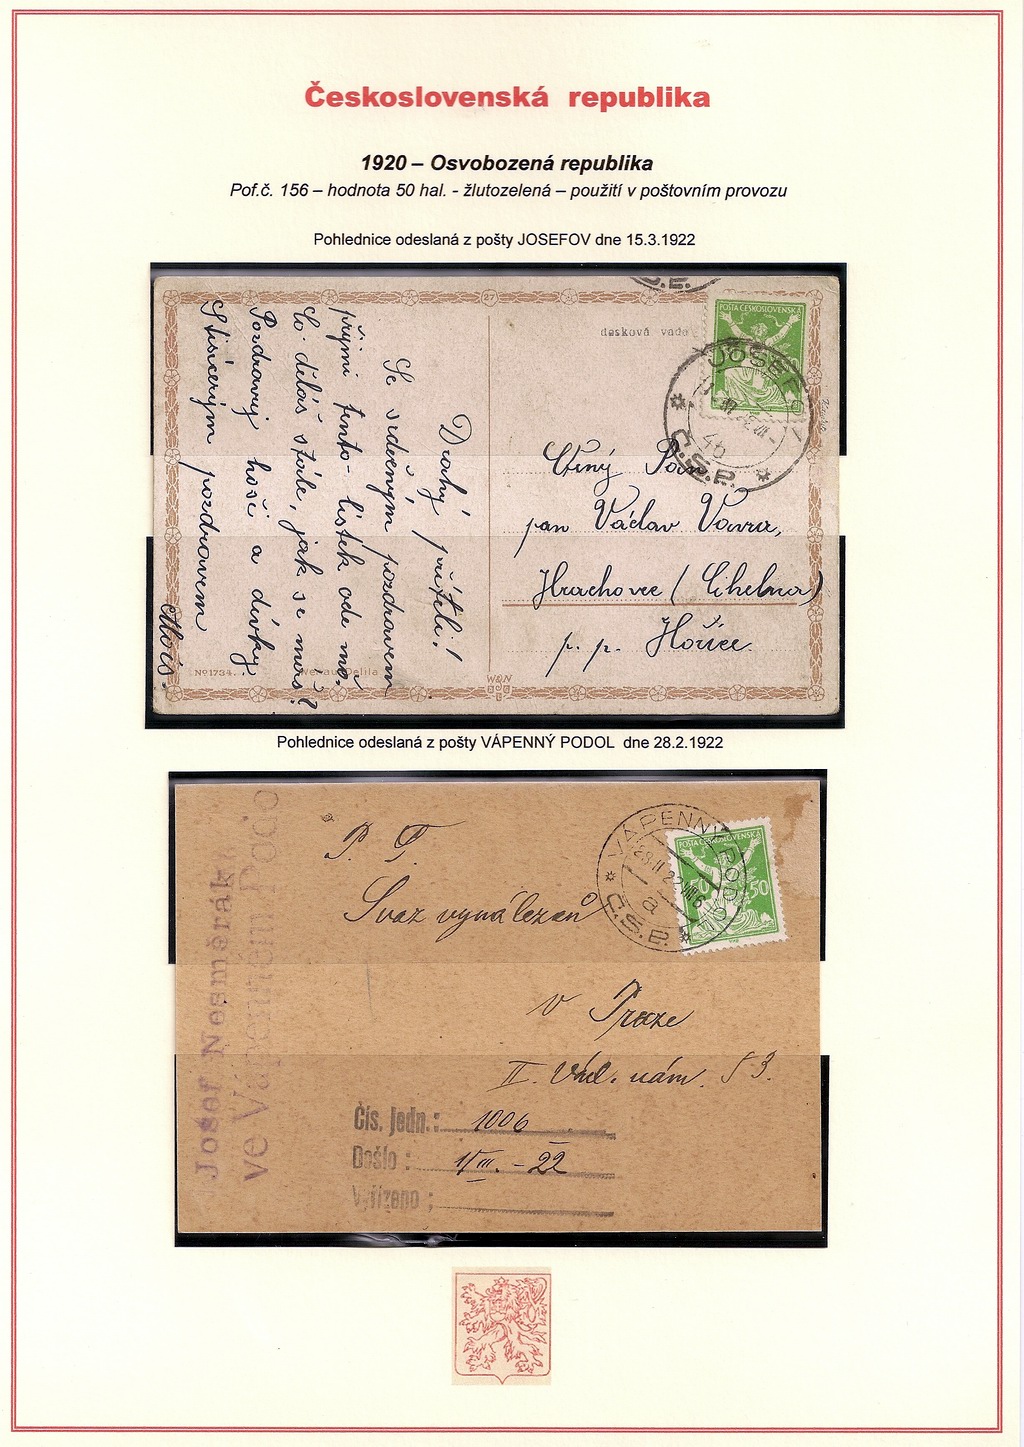 Československá republika
1920 – Osvobozená republika
Pof.č. 156 – hodnota 50 hal. - žlutozelená – použití v poštovním provozu
Pohlednice odeslaná z pošty JOSEFOV dne 15.3.1922
Drahý příteli!
Se srdečným pozdravem
přijmi tento-lístek ode mě.
Co děláš stále, jak se máš?
Pozdravuj hoši a dívky
S tisícerým pozdravem
Alois.
No 1734.
27
W&N
desková vada
POŠTA ČESKOSLOVENSKÁ
JOSEFOV
4b
Č.S.P.
Ctěný Pán
pan Václav Vavra,
Hrachovec (Cihelna)
p. p. Hořice.
Pohlednice odeslaná z pošty VÁPENNÝ PODOL dne 28.2.1922
Josef Nesměrák
ve Vápenném Podo
P. T.
Svaz vynálezců
v Praze
II. Václ. nám. 53.
POŠTA ČESKOSLOVENSKÁ
50 50
VÁPENNÝ PODOL
28.II.22
a
Č.S.P.
Čís. jedn.: 1006
Došlo : 1/III. - 22
Vyřízeno :